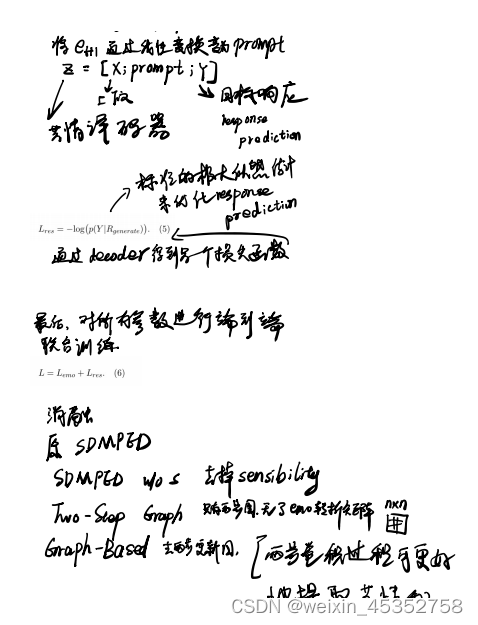 将 e_{t+1} 通过线性变换变为 prompt
Z = [X; prompt; Y]
上文 目标响应
共情译码器 response
prediction
标准的极大似然估计
来优化 response
prediction
L_{res} = -log(p(Y|R_{generate})). (5)
通过 decoder 得到另一个损失函数
最后,对所有参数进行端到端
联合训练
L = L_{emo} + L_{res}. (6)
消融
原 SDMPED
SDMPED w/o s 去掉 sensibility
Two-Step Graph 只有两步图,无了 emo 转折 n×n
Graph-Based 去两步更新图, [两步量化过程可更好
地提取共情
CSDN @weixin_45352758